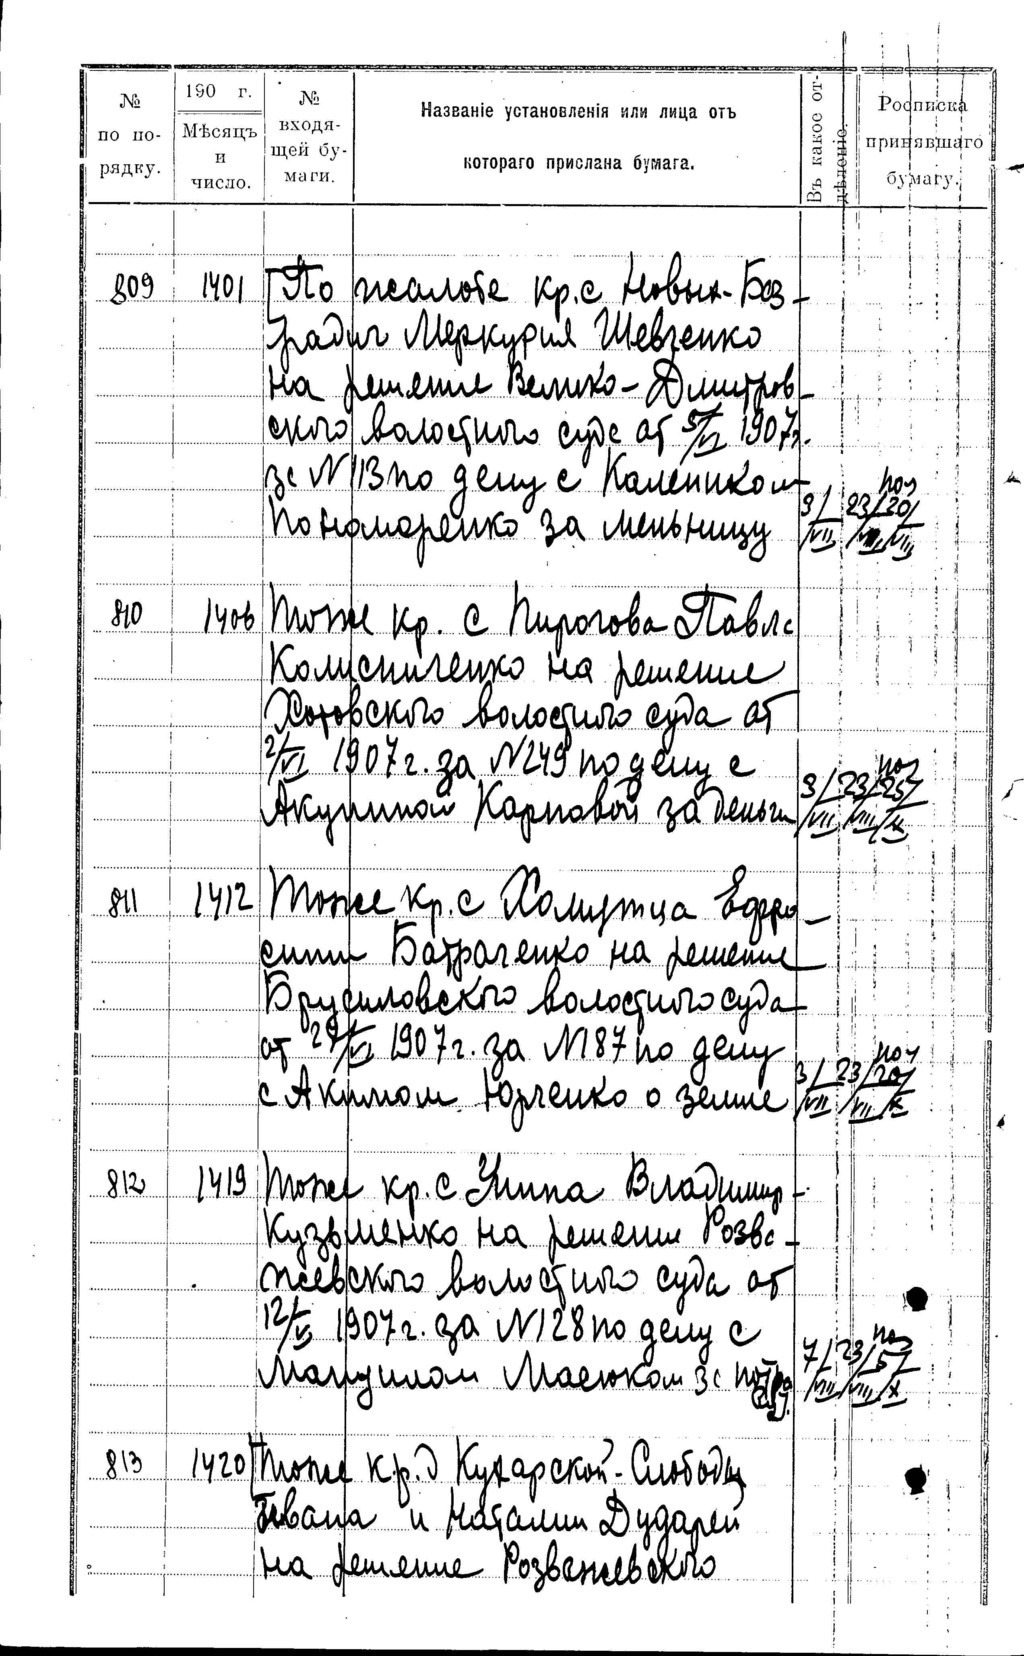 № по порядку.
190 г.
Мѣсяцъ и число.
№ входящей бумаги.
Названіе установленія или лица отъ
котораго прислана бумага.
Въ какое отдѣленіе.
Росписка принявшаго бумагу.
809 1401 По жалобе кр. с Новых-Без-
традич Меркурия Шевченко
на решение Велико-Дмитров-
ского волостного суда от 5/VI 1907 г.
за N 113 по делу с Калеником
Пономаренко за мельницу 3/VII 23/VIII 20/VIII
810 1406 Тоже кр. с Пирогова Павла
Колисниченко на решение
Хотовского волостного суда от
2/VI 1907 г. за N 249 по делу с
Акулиной Карповой за деньги 3/VII 23/VIII 25/X
811 1412 Тоже кр. с Хомутца Ефро-
синии Батраченко на решение
Брусиловского волостного суда
от 29/VI 1907 г. за N 187 по делу
с Акимом Юрченко о земле 3/VII 23/VIII 20/X
812 1419 Тоже кр. с Унина Владимир
Кузьменко на решение Розва-
жевского волостного суда от
12/VI 1907 г. за N 128 по делу с
Мануилом Масюком за потра
813 1420 Тоже кр. д Кухарской-Слободы
и Наталии Дударей
на решение Розважевского
7/VII 23/VIII 5/X